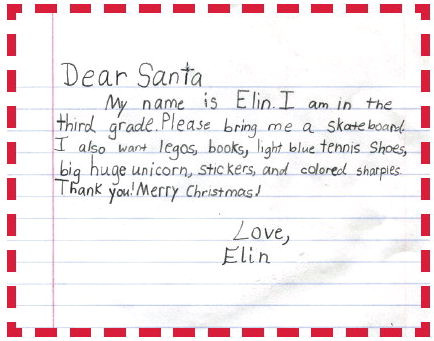 Dear Santa
My name is Elin. I am in the
third grade. Please bring me a skateboard.
I also want legos, books, light blue tennis shoes,
big huge unicorn, stickers, and colored sharpies.
Thank you! Merry Christmas!
Love,
Elin